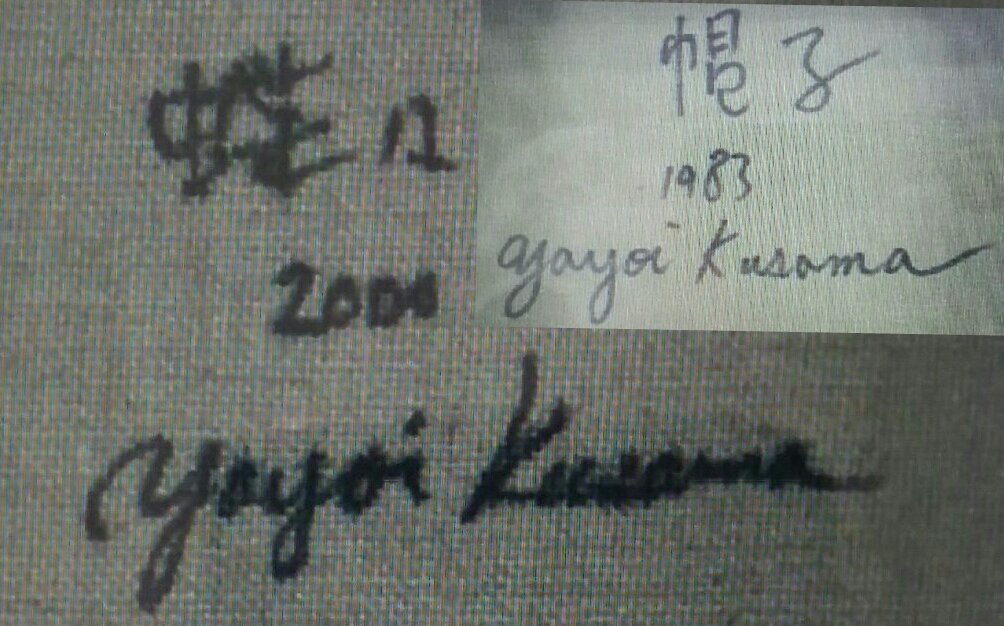 蝶 12
2000
yayoi Kusama
帽子
1983
yayoi Kusama